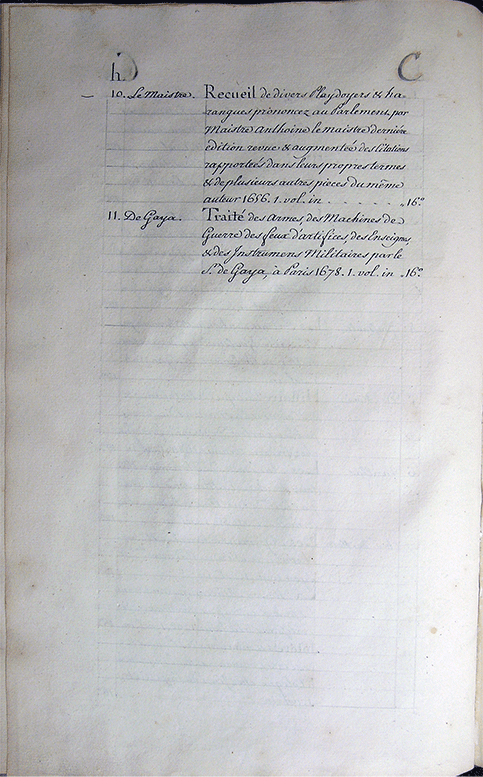 h. C
10. Le Maistre. Recueil de divers Playdoyers & ha-
rangues prononcez au Parlement par
Maistre Anthoine le maistre derniére
édition revue & augmentée des Citations
rapportées dans leurs propres termes
& de plusieurs autres pieces du même
auteur 1656. 1. vol. in . . . . . . 16°
11. De Gaya. Traité des Armes, des Machines de
Guerre des feux d'artifices, des Enseignes,
& des Instrumens Militaires par le
Sr. de Gaya, à Paris 1678. 1. vol. in . 16°